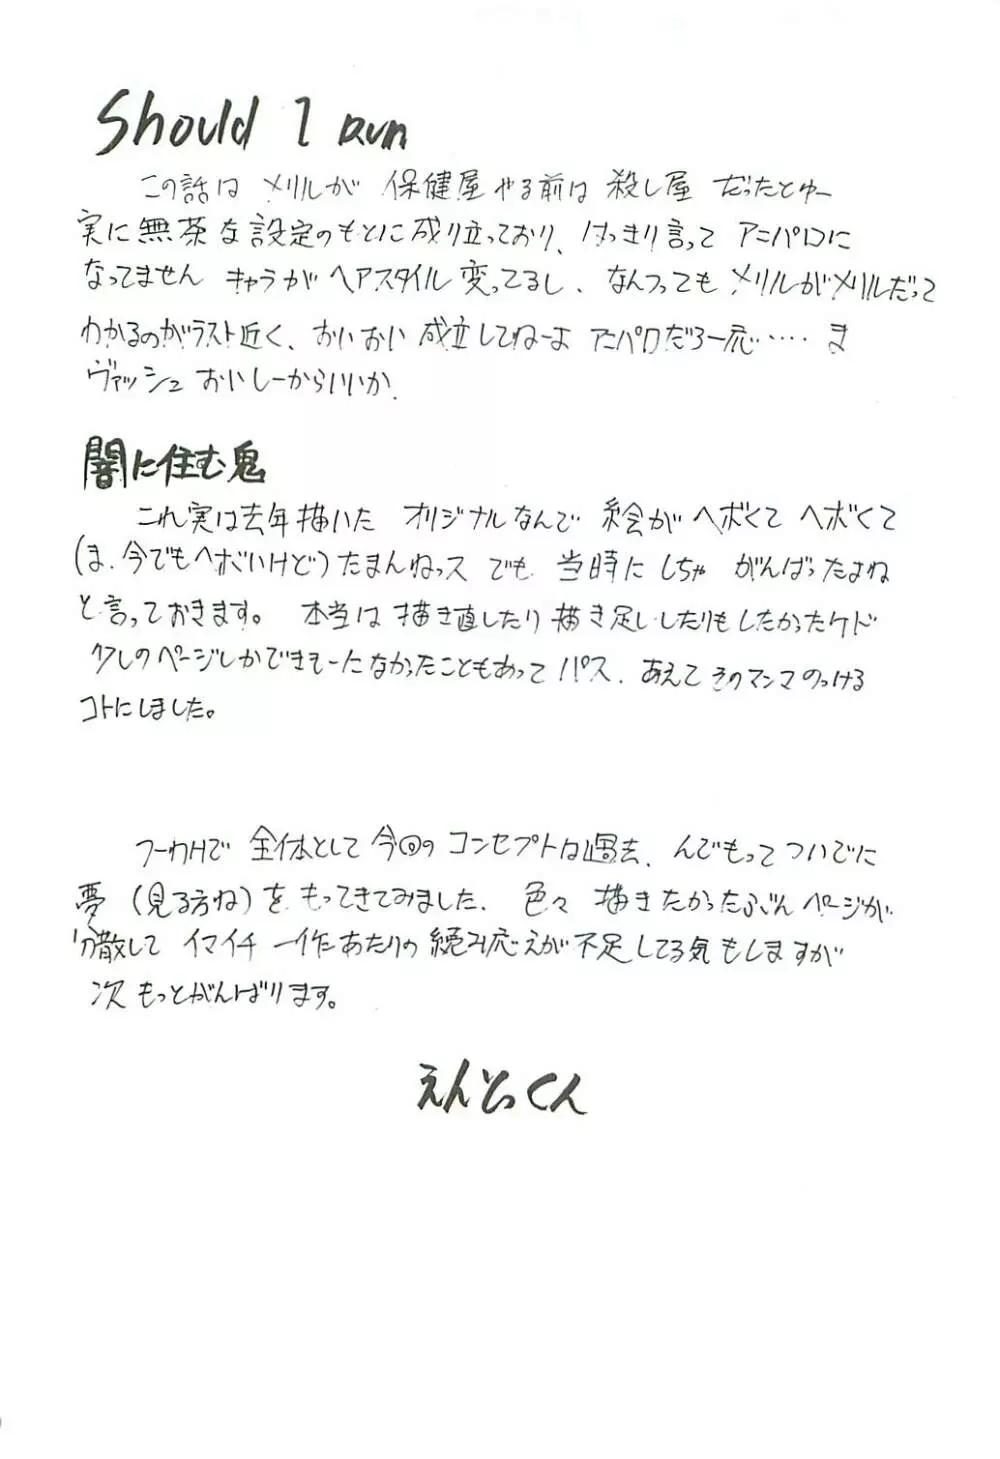 Should I Run
この話は メリルが 保健屋やる前は 殺し屋 だったとゆー
実に無茶な設定のもとに成り立っており、はっきり言って アニパロに
なってません キャラがヘアスタイル変ってるし、なんつっても メリルがメリルだって
わかるのがラスト近く、おいおい 成立してねーよ アニパロだろ一応‥‥‥ ま
ヴァッシュ おいしーからいいか.
闇に住む鬼
これ実は去年描いた オリジナルなんで 絵が ヘボくて ヘボくて
(ま、今でもヘボいけど)たまんねっス でも 当時にしちゃ がんばったよね
と言っておきます。 本当は 描き直したり 描き足ししたりもしたかったケド
少しのページしかできそーになかったこともあって パス. あえて そのマンマ のっける
コトにしました。
つーわけで 全体として 今回の コンセプトは過去、んでもって ついでに
夢(見る方ね)を もってきてみました. 色々 描きたかったぶん ページが
分散して イマイチ 一作あたりの 読み応えが 不足してる気もしますが
次 もっとがんばります。
えんとっくん